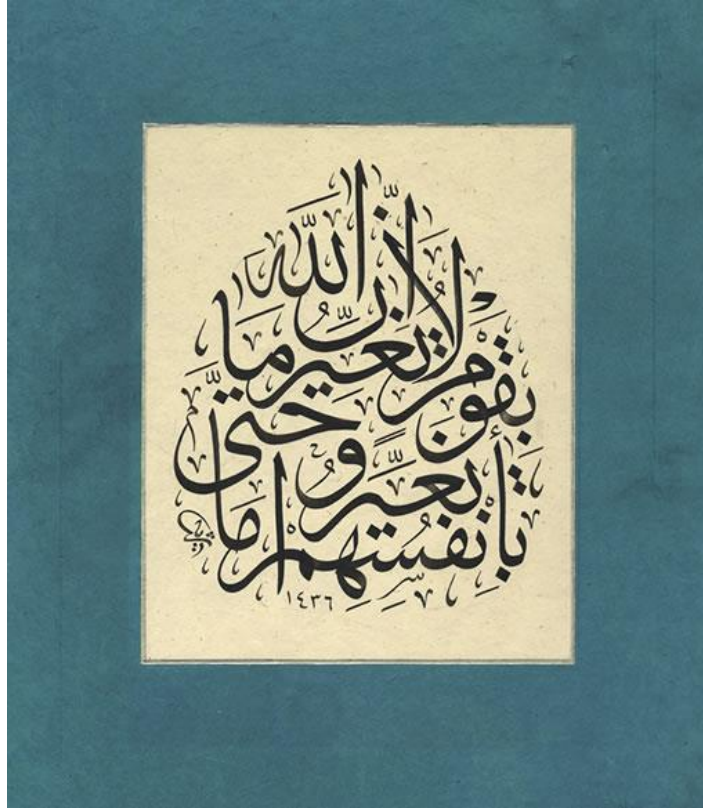 إِنَّ اللَّهَ لَا يُغَيِّرُ مَا بِقَوْمٍ حَتَّىٰ يُغَيِّرُوا مَا بِأَنْفُسِهِمْ
١٤٣٦